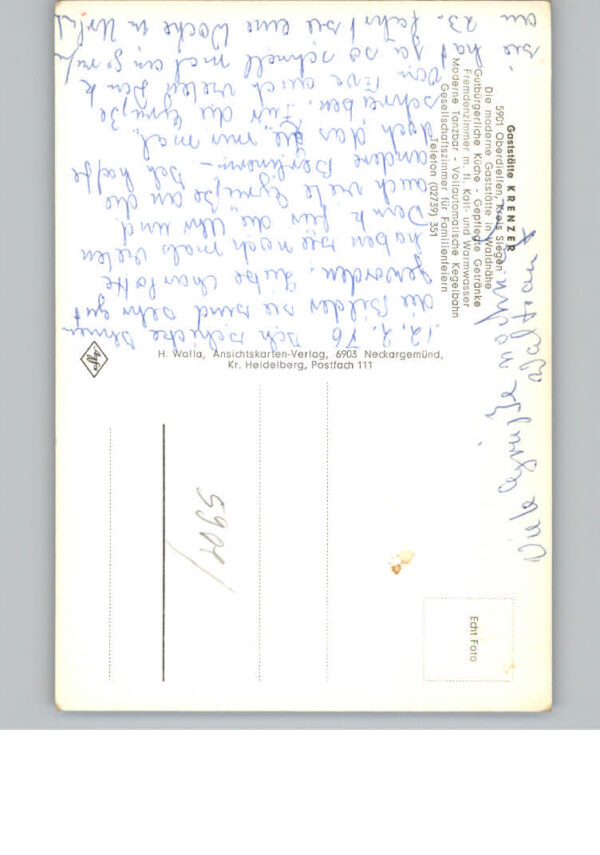 Gaststätte KRENZER
5901 Oberdielfen, Kreis Siegen
Die moderne Gaststätte in Waldnähe
Gutbürgerliche Küche - Gepflegte Getränke
Fremdenzimmer m. fl. Kalt- und Warmwasser
Moderne Tanzbar - Vollautomatische Kegelbahn
Gesellschaftszimmer für Familienfeiern
Telefon (02739) 351
12. 2. 76 Ich schicke Ihnen
die Bilder sie sind sehr gut
geworden. Liebe Charlotte
haben sie nochmals vielen
Dank für die Uhr und
auch viele Grüße an die
andere Berlinern. - Ich hoffe
doch das sie, mir mal,
schreiben. Für die Grüße
von Eve auch vielen Dank
sie hat ja so schnell mal
am 23. fährt sie eine Woche in
Viele Grüße
Waltraut
H. Walla, Ansichtskarten-Verlag, 6903 Neckargemünd,
Kr. Heidelberg, Postfach 111
Agfa
5901
Echt Foto